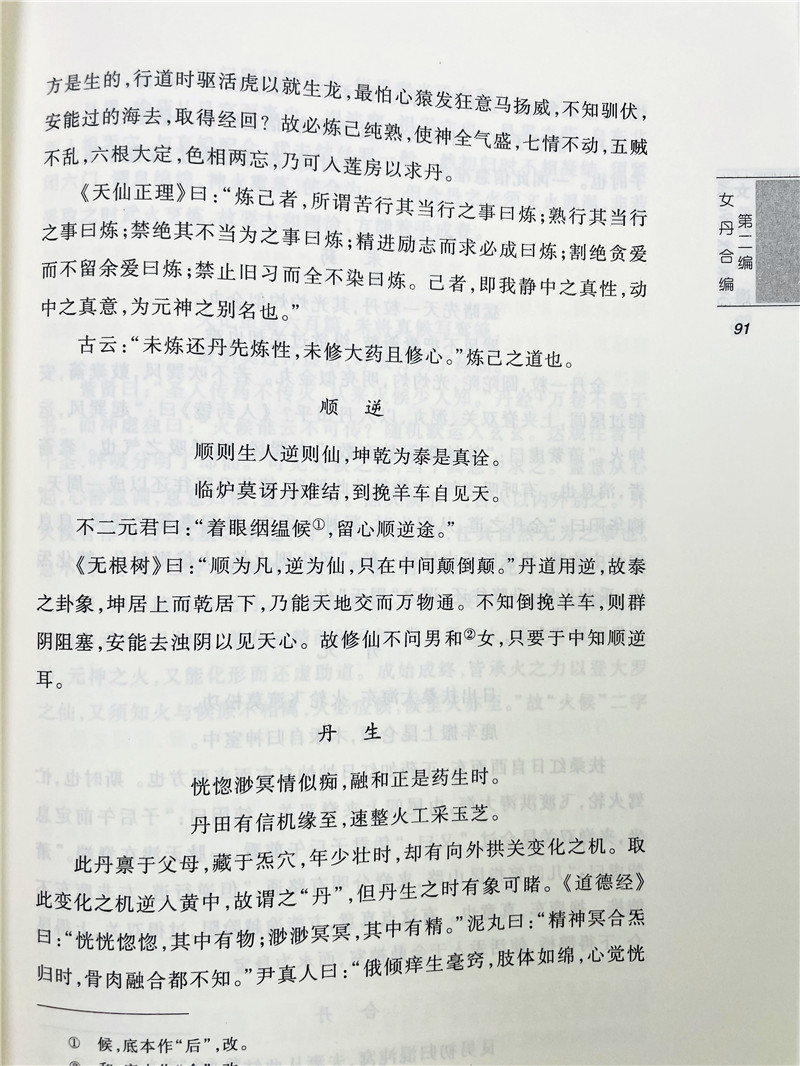 方是生的，行道时驱活虎以就生龙，最怕心猿发狂意马扬威，不知驯伏，
安能过的海去，取得经回？故必炼己纯熟，使神全气盛，七情不动，五贼
不乱，六根大定，色相两忘，乃可入莲房以求丹。
《天仙正理》曰：“炼己者，所谓苦行其当行之事曰炼；熟行其当行
之事曰炼；禁绝其不当为之事曰炼；精进励志而求必成曰炼；割绝贪爱
而不留余爱曰炼；禁止旧习而全不染曰炼。己者，即我静中之真性，动
中之真意，为元神之别名也。”
古云：“未炼还丹先炼性，未修大药且修心。”炼己之道也。
顺 逆
顺则生人逆则仙，坤乾为泰是真诠。
临炉莫讶丹难结，到挽羊车自见天。
不二元君曰：“着眼絪缊候①，留心顺逆途。”
《无根树》曰：“顺为凡，逆为仙，只在中间颠倒颠。”丹道用逆，故泰
之卦象，坤居上而乾居下，乃能天地交而万物通。不知倒挽羊车，则群
阴阻塞，安能去浊阴以见天心。故修仙不问男和②女，只要于中知顺逆
耳。
丹 生
恍惚渺冥情似痴，融和正是药生时。
丹田有信机缘至，速整火工采玉芝。
此丹禀于父母，藏于炁穴，年少壮时，却有向外拱关变化之机。取
此变化之机逆入黄中，故谓之“丹”，但丹生之时有象可睹。《道德经》
曰：“恍恍惚惚，其中有物；渺渺冥冥，其中有精。”泥丸曰：“精神冥合炁
归时，骨肉融合都不知。”尹真人曰：“俄倾痒生毫窍，肢体如绵，心觉恍
① 候，底本作“后”，改。
第二编
女丹合编
91